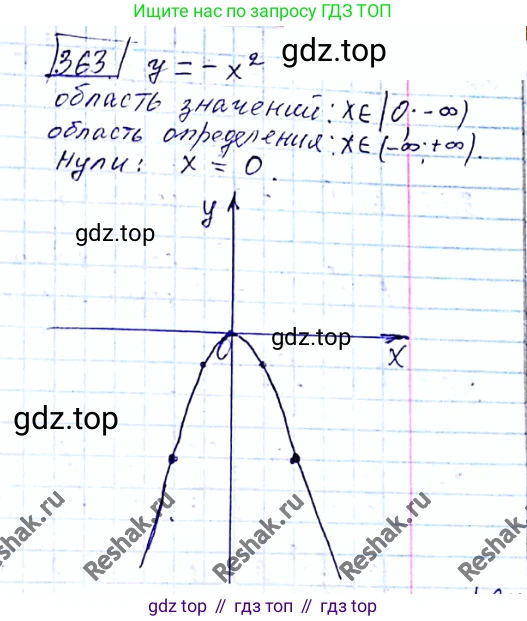 Ищите нас по запросу ГДЗ ТОП
363 y = - x²
gdz.top
область значений: x∈[0; -∞)
область определения: x∈(-∞; +∞).
Нули: x = 0.
y
gdz.top
gdz.top
0
x
gdz.top
Reshak.ru
Reshak.ru
Reshak.ru
Reshak.ru
gdz.top // гдз.топ // gdz.top